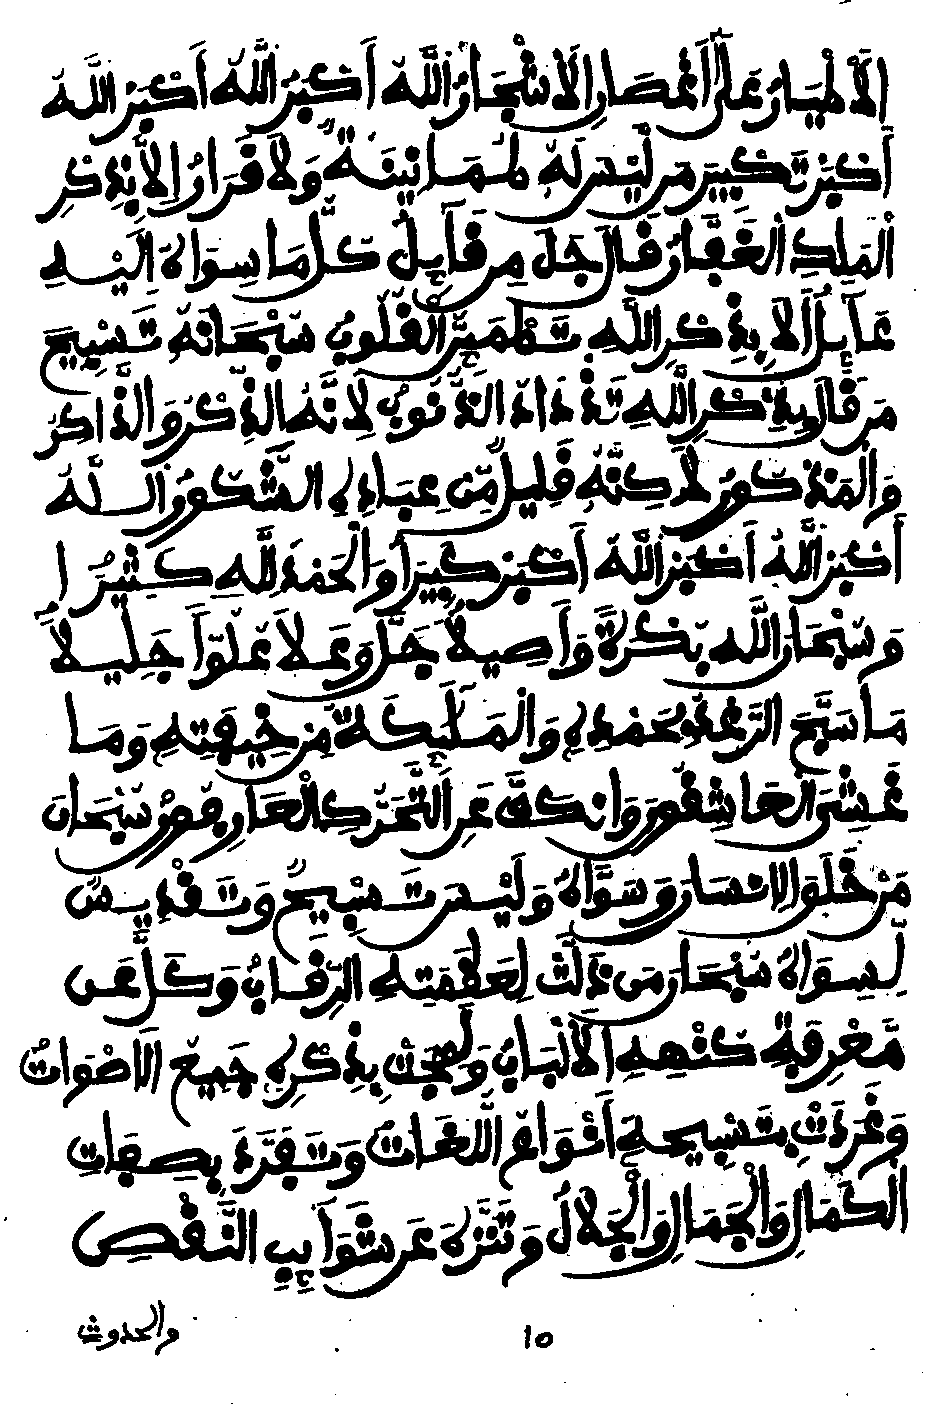 الَاطْيَارُ عَلَى أَغْصَارِ الَاشْجَارُ اللَّهُ أَكْبَرُ اللَّهُ أَكْبَرُ اللَّهُ
أَكْبَرُ تَكْبِيرَ مَن لَّيْسَ لَهُ طُمَانِينَةٌ وَلَا قَرَارٌ إِلَّا بِذِكْرِ
الْمَلِكِ الْغَفَّارُ قَالَ جَلَّ مِن قَآئِلٍ كُلُّ مَا سِوَاهُ إِلَيْهِ
عَآئِلٌ أَلَا بِذِكْرِ اللَّهِ تَطْمَئِنُّ الْقُلُوبُ سُبْحَانَهُ تَسْبِيحَ
مَن قَالَ بِذِكْرِ اللَّهِ تُذَادُ الذُّنُوبُ لِأَنَّهُ الذِّكْرُ وَالذَّاكِرُ
وَالْمَذْكُورُ لَاكِنَّهُ قَلِيلٌ مِّنْ عِبَادِيَ الشَّكُورُ اللَّهُ
أَكْبَرُ اللَّهُ أَكْبَرُ اللَّهُ أَكْبَرُ كَبِيرًا وَالْحَمْدُ لِلَّهِ كَثِيرًا
وَسُبْحَانَ اللَّهِ بُكْرَةً وَأَصِيلًا جَلَّ وَعَلَا عُلُوًّا جَلِيلًا
مَا سَبَّحَ الرَّعْدُ بِحَمْدِهِ وَالْمَلَٰئِكَةُ مِنْ خِيفَتِهِ وَمَا
غُشِيَ الْعَاشِقُونَ وَانْكَفَّ عَنِ التَّحَرُّكِ الْعَارِفُونَ سُبْحَانَ
مَنْ خَلَقَ الِانسَانَ وَسَوَّاهُ وَلَيْسَ تَسْبِيحٌ وَتَقْدِيسٌ
لِسِوَاهُ سُبْحَانَ مَن ذَلَّتْ لِعَظَمَتِهِ الرِّقَابُ وَكَلَّ عَن
مَّعْرِفَةِ كُنْهِهِ الَالْبَابُ وَلَهِجَتْ بِذِكْرِهِ جَمِيعُ الَاصْوَاتِ
وَغَرَّدَتْ بِتَسْبِيحِهِ أَنْوَاعُ اللُّغَاتُ وَتَفَرَّدَ بِصِفَاتِ
الْكَمَالِ وَالْجَمَالِ وَالْجَلَالِ وَتَنَزَّهَ عَن شَوَآئِبِ النَّقْصِ
والحدوث
١٥